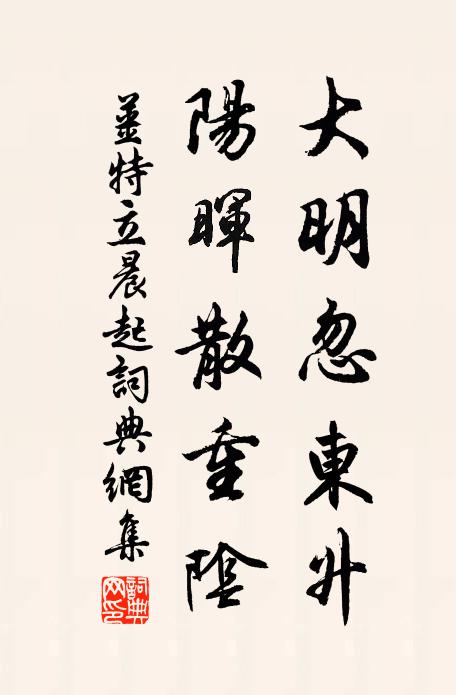 大明忽東升
陽暉散重陰
姜特立晨起詞典網集
詞典網印